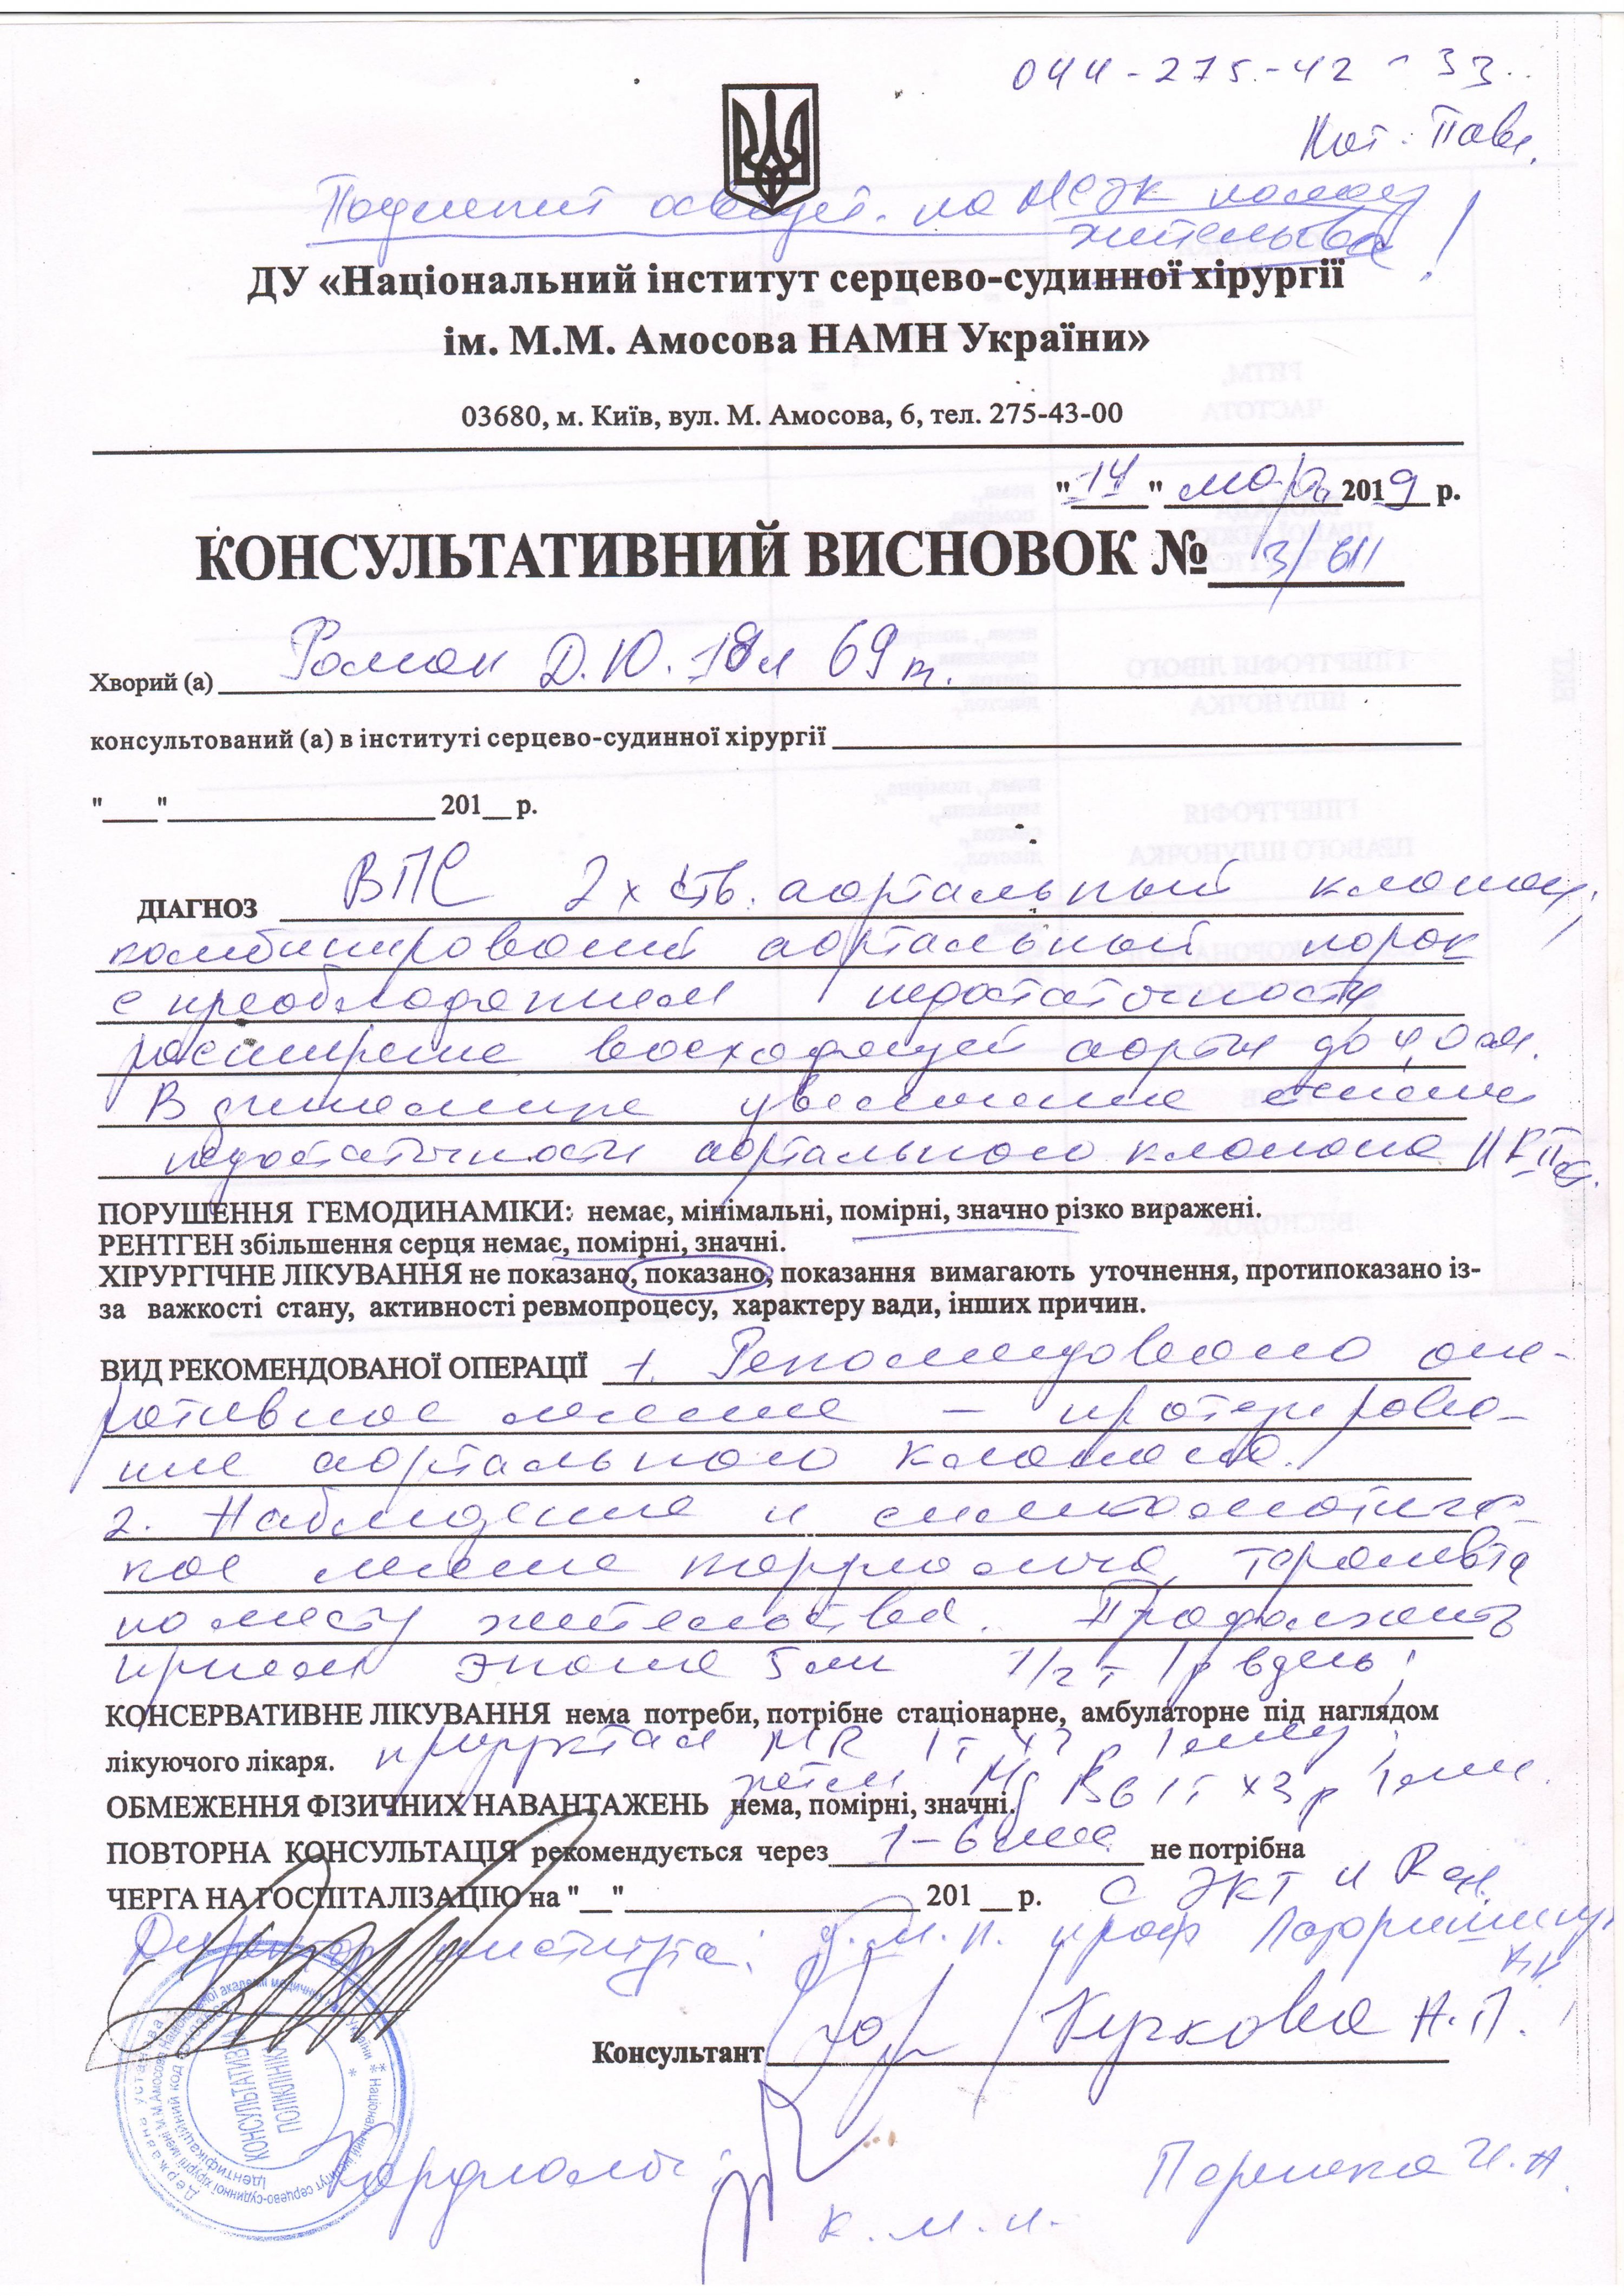 044-275-42-33
Нат. Павл.
Подлежит освидет. на МСЭК по месту
жительства!
ДУ «Національний інститут серцево-судинної хірургії
ім. М.М. Амосова НАМН України»
03680, м. Київ, вул. М. Амосова, 6, тел. 275-43-00
"14" марта 2019 р.
КОНСУЛЬТАТИВНИЙ ВИСНОВОК № 3/611
Хворий (а) Роман Д.Ю. 18л 69
консультований (а) в інституті серцево-судинної хірургії
"____" ____ 201__ р.
ДІАГНОЗ ВПС 2х ств. аортальный клапан,
комбинированный аортальный порок
с преобладанием недостаточности
расширение восходящей аорты до 4,0 см.
В динамике увеличение степени
недостаточности аортального клапана
ПОРУШЕННЯ ГЕМОДИНАМІКИ: немає, мінімальні, помірні, значно різко виражені.
РЕНТГЕН збільшення серця немає, помірні, значні.
ХІРУРГІЧНЕ ЛІКУВАННЯ не показано, показано, показання вимагають уточнення, протипоказано із-
за важкості стану, активності ревмопроцесу, характеру вади, інших причин.
ВИД РЕКОМЕНДОВАНОЇ ОПЕРАЦІЇ 1. Рекомендовано опе-
ративное лечение – протезирова-
ние аортального клапана.
2. Наблюдение и симптоматичес-
кое лечение кардиолога, терапевта
по месту жительства. Продолжить
прием 5 мг 1/2 т 1 р в день,
КОНСЕРВАТИВНЕ ЛІКУВАННЯ нема потреби, потрібне стаціонарне, амбулаторне під наглядом
лікуючого лікаря. предуктал MR 1т х2 р 1 мес,
затем Mg B6 1т х3 р 1 мес.
ОБМЕЖЕННЯ ФІЗИЧНИХ НАВАНТАЖЕНЬ нема, помірні, значні.
ПОВТОРНА КОНСУЛЬТАЦІЯ рекомендується через 1-6 мес не потрібна
ЧЕРГА НА ГОСПІТАЛІЗАЦІЮ на "__" ____ 201__ р. с ЭКГ и R
Директор института: д.м.н. проф
Консультант Кучкова Н.П.
Державна установа
Національний інститут серцево-судинної хірургії імені М.М.Амосова Національної академії медичних наук України
Ідентифікаційний код
КОНСУЛЬТАТИВНА
ПОЛІКЛІНІКА
Кардиолог
к.м.н.